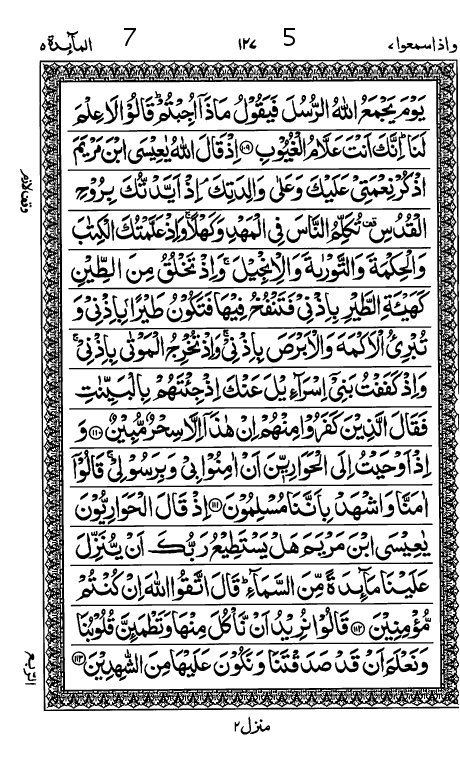 واذا سمعوا ٧ 5 ١٢٧ 7 المآئدة ٥
يَوْمَ يَجْمَعُ اللّٰهُ الرُّسُلَ فَيَقُوْلُ مَاذَاۤ اُجِبْتُمْ ؕ قَالُوْا لَا عِلْمَ
لَنَا ؕ اِنَّكَ اَنْتَ عَلَّامُ الْغُيُوْبِ ﴿۱۰۹﴾ اِذْ قَالَ اللّٰهُ يٰعِيْسَى ابْنَ مَرْيَمَ
اذْكُرْ نِعْمَتِيْ عَلَيْكَ وَعَلٰى وَالِدَتِكَ ۘ اِذْ اَيَّدْتُّكَ بِرُوْحِ
الْقُدُسِ ۫ تُكَلِّمُ النَّاسَ فِي الْمَهْدِ وَكَهْلًا ۚ وَاِذْ عَلَّمْتُكَ الْكِتٰبَ
وَالْحِكْمَةَ وَالتَّوْرٰىةَ وَالْاِنْجِيْلَ ۚ وَاِذْ تَخْلُقُ مِنَ الطِّيْنِ
كَهَيْـَٔةِ الطَّيْرِ بِاِذْنِيْ فَتَنْفُخُ فِيْهَا فَتَكُوْنُ طَيْرًۢا بِاِذْنِيْ وَ
تُبْرِئُ الْاَكْمَهَ وَالْاَبْرَصَ بِاِذْنِيْ ۚ وَاِذْ تُخْرِجُ الْمَوْتٰى بِاِذْنِيْ ۚ
وَاِذْ كَفَفْتُ بَنِيْۤ اِسْرَآءِيْلَ عَنْكَ اِذْ جِئْتَهُمْ بِالْبَيِّنٰتِ
فَقَالَ الَّذِيْنَ كَفَرُوْا مِنْهُمْ اِنْ هٰذَاۤ اِلَّا سِحْرٌ مُّبِيْنٌ ﴿۱۱۰﴾ وَ
اِذْ اَوْحَيْتُ اِلَى الْحَوَارِيّٖنَ اَنْ اٰمِنُوْا بِيْ وَبِرَسُوْلِيْ ۚ قَالُوْۤا
اٰمَنَّا وَاشْهَدْ بِاَنَّنَا مُسْلِمُوْنَ ﴿۱۱۱﴾ اِذْ قَالَ الْحَوَارِيُّوْنَ
يٰعِيْسَى ابْنَ مَرْيَمَ هَلْ يَسْتَطِيْعُ رَبُّكَ اَنْ يُّنَزِّلَ
عَلَيْنَا مَآئِدَةً مِّنَ السَّمَآءِ ؕ قَالَ اتَّقُوا اللّٰهَ اِنْ كُنْتُمْ
مُّؤْمِنِيْنَ ﴿۱۱۲﴾ قَالُوْا نُرِيْدُ اَنْ نَّاْكُلَ مِنْهَا وَتَطْمَئِنَّ قُلُوْبُنَا
وَنَعْلَمَ اَنْ قَدْ صَدَقْتَنَا وَنَكُوْنَ عَلَيْهَا مِنَ الشّٰهِدِيْنَ ﴿۱۱۳﴾
وقف لازم
الربع
منزل ٢